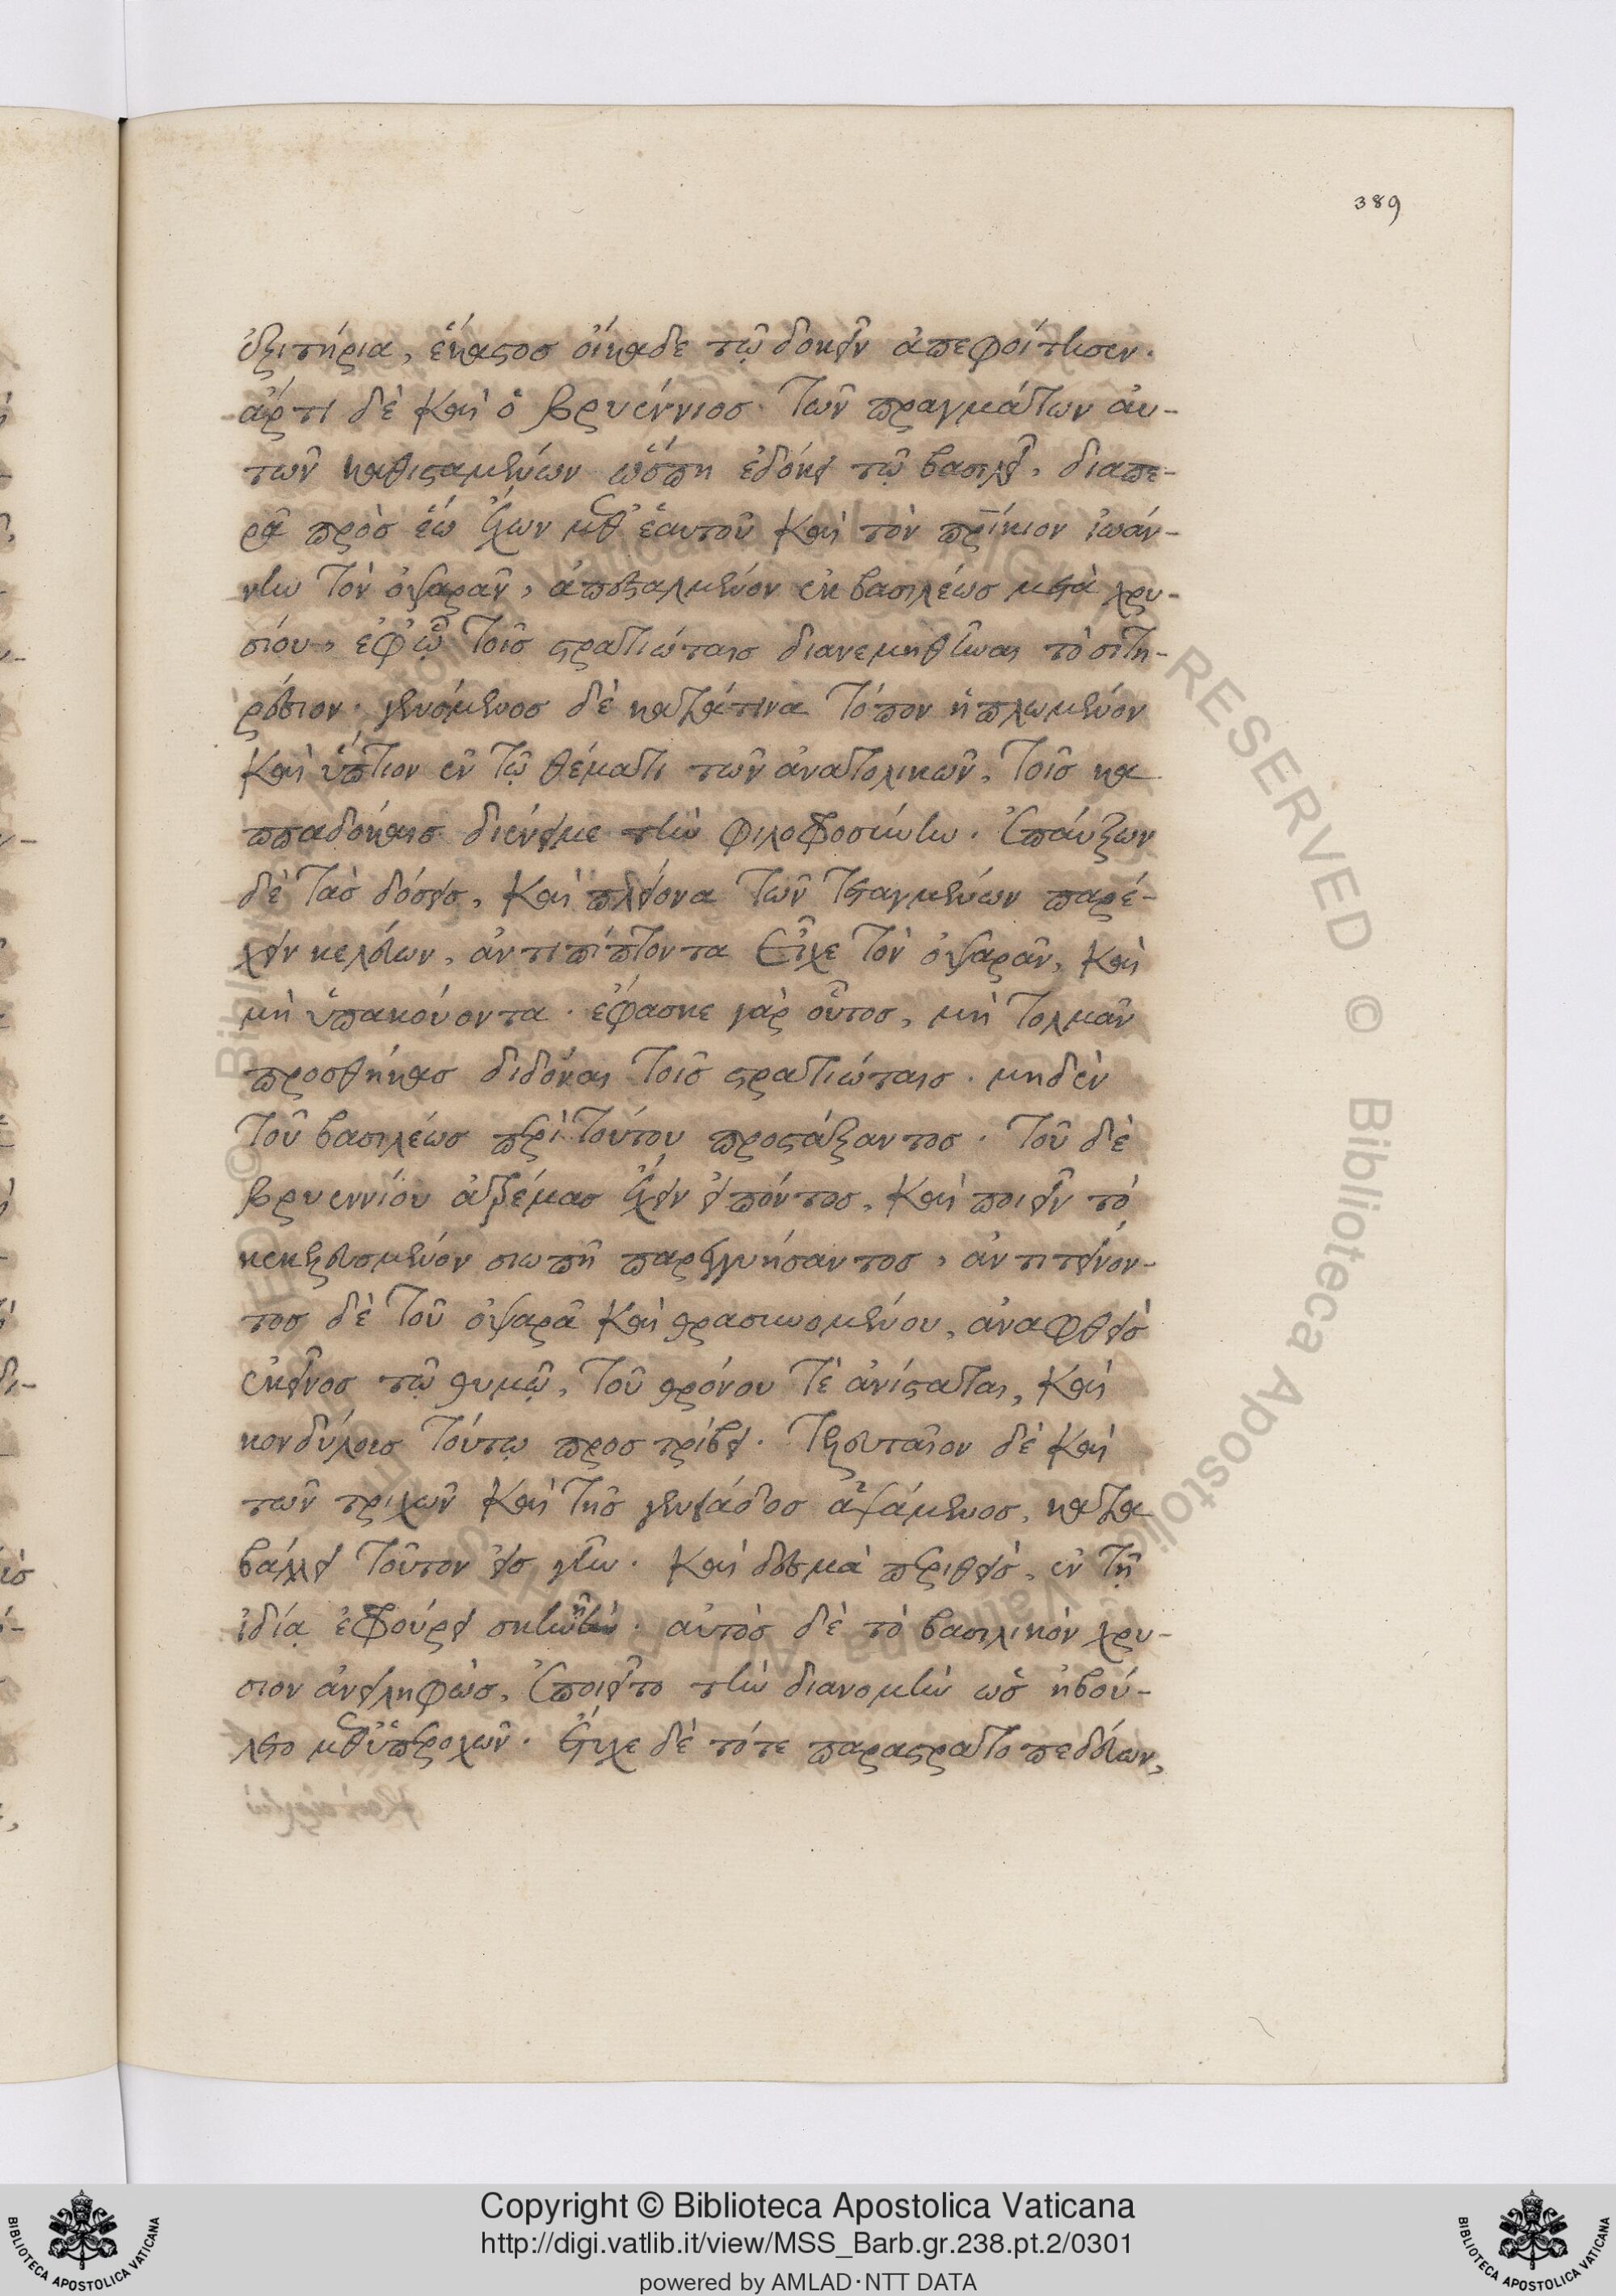 389
ἐξιτήρια, ἕκαστος οἴκαδε τῷ δοκεῖν ἀπεφοίτησεν.
ἄρτι δὲ καὶ ὁ βρυέννιος τῶν πραγμάτων αὐ-
τῶν καθισταμένων ὥσπη ἐδόκει τῷ βασιλεῖ, διαπε-
ρᾶ πρὸς ἕω ἔχων μεθ' ἑαυτοῦ καὶ τὸν πρίκιον ἰωάν-
νην τὸν ὀψαρᾶν, ἀποσταλμένον ἐκ βασιλέως μετὰ χρυ-
σίου, ἐφ' ᾧ τοῖς στρατιώταις διανεμηθῆναι τὸ σιτη-
ρέσιον. γενόμενος δὲ κατάτινα τόπον ἡπλωμένον
καὶ ὕπτιον ἐν τῷ θέματι τῶν ἀνατολικῶν, τοῖς κα
ππαδόκαις διένειμε τὴν φιλοφροσύνην. ἐπαύξων
δὲ τὰς δόσεις, καὶ πλείονα τῶν τεταγμένων παρέ-
χειν κελεύων, ἀντιπίπτοντα εἶχε τὸν ὀψαρᾶν, καὶ
μὴ ὑπακούοντα. ἔφασκε γὰρ οὗτος, μὴ τολμᾶν
προσθήκας διδόναι τοῖς στρατιώταις. μηδὲν
τοῦ βασιλέως περὶ τούτου προστάξαντος. τοῦ δὲ
βρυεννίου ἀτρέμας ἔχειν εἰπόντος, καὶ ποιεῖν τὸ
κεκελευσμένον σιωπῇ παρεγγυήσαντος, ἀντιτείνον-
τος δὲ τοῦ ὀψαρᾶ καὶ θρασυνομένου, ἀναφθεὶς
ἐκεῖνος τῷ θυμῷ, τοῦ θρόνου τὲ ἀνίσταται, καὶ
κονδύλοις τούτῳ προστρίβει. τελευταῖον δὲ καὶ
τῶν τριχῶν καὶ τῆς γενειάδος ἁψάμενος, κατα
βάλλει τοῦτον εἰς γῆν. καὶ δεσμὰ περιθεὶς, ἐν τῇ
ἰδίᾳ ἐφρούρει σκηνῇ. αὐτὸς δὲ τὸ βασιλικὸν χρυ-
σίον ἀνειληφὼς, ἐποιεῖτο τὴν διανομὴν ὡς ἠβού-
λετο μεθ' ὑπεροχῶν. ἔτυχε δὲ τότε παραστρατοπεδεύων,
Copyright © Biblioteca Apostolica Vaticana
http://digi.vatlib.it/view/MSS_Barb.gr.238.pt.2/0301
powered by AMLAD·NTT DATA